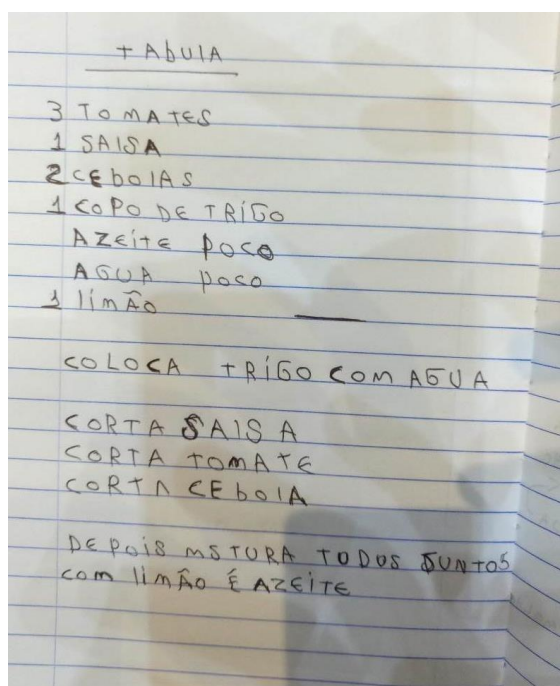 TABULA
3 TOMATES
1 SALSA
2 CEBOLAS
1 COPO DE TRÍGO
AZEITE POCO
AGUA POCO
1 LIMÃO
COLOCA TRÍGO COM AGUA
CORTA SALSA
CORTA TOMATE
CORTA CEBOLA
DEPOIS MSTURA TODOS JUNTOS
COM LIMÃO É AZEITE